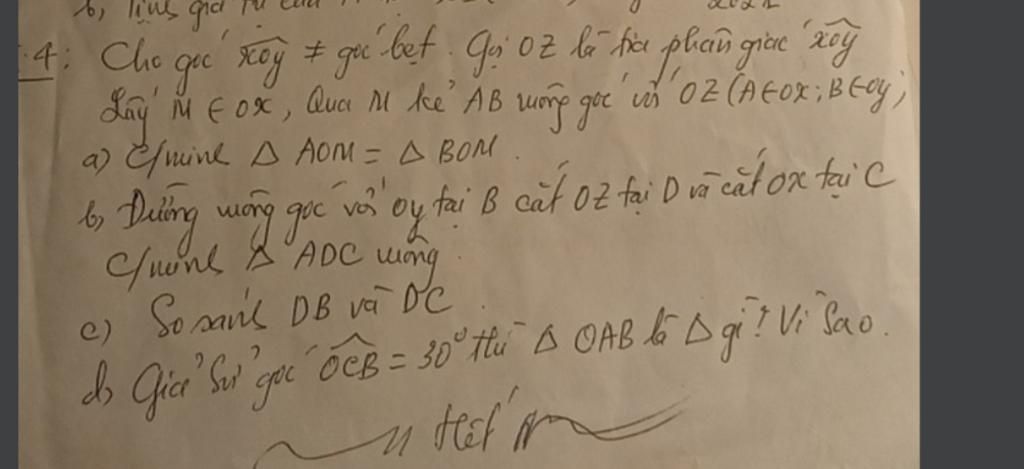 b, Tính giá trị của
4: Cho góc xoy ≠ góc bẹt. Gọi OZ là tia phân giác xoy
Lấy M ∈ OX, Qua M kẻ AB vuông góc với OZ (A∈OX; B∈oy)
a) C/minh Δ AOM = Δ BOM.
b, Đường vuông góc với oy tại B cắt OZ tại D và cắt OX tại C
C/minh Δ ADC vuông.
c) So sánh DB và DC.
d, Giả sử góc OCB = 30° thì Δ OAB là Δ gì? Vì sao.
Hết